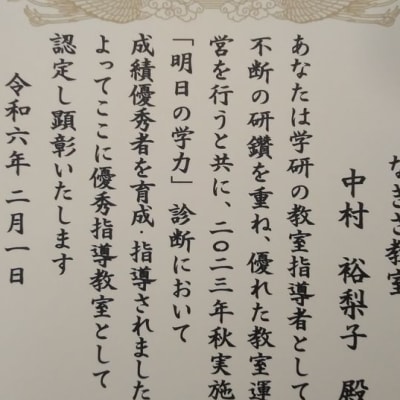 なぎさ教室
中村 裕梨子 殿
あなたは学研の教室指導者として
不断の研鑽を重ね、優れた教室運
営を行うと共に、二〇二三年秋実施
「明日の学力」診断において
成績優秀者を育成、指導されました
よってここに優秀指導教室として
認定し顕彰いたします
令和六年二月一日